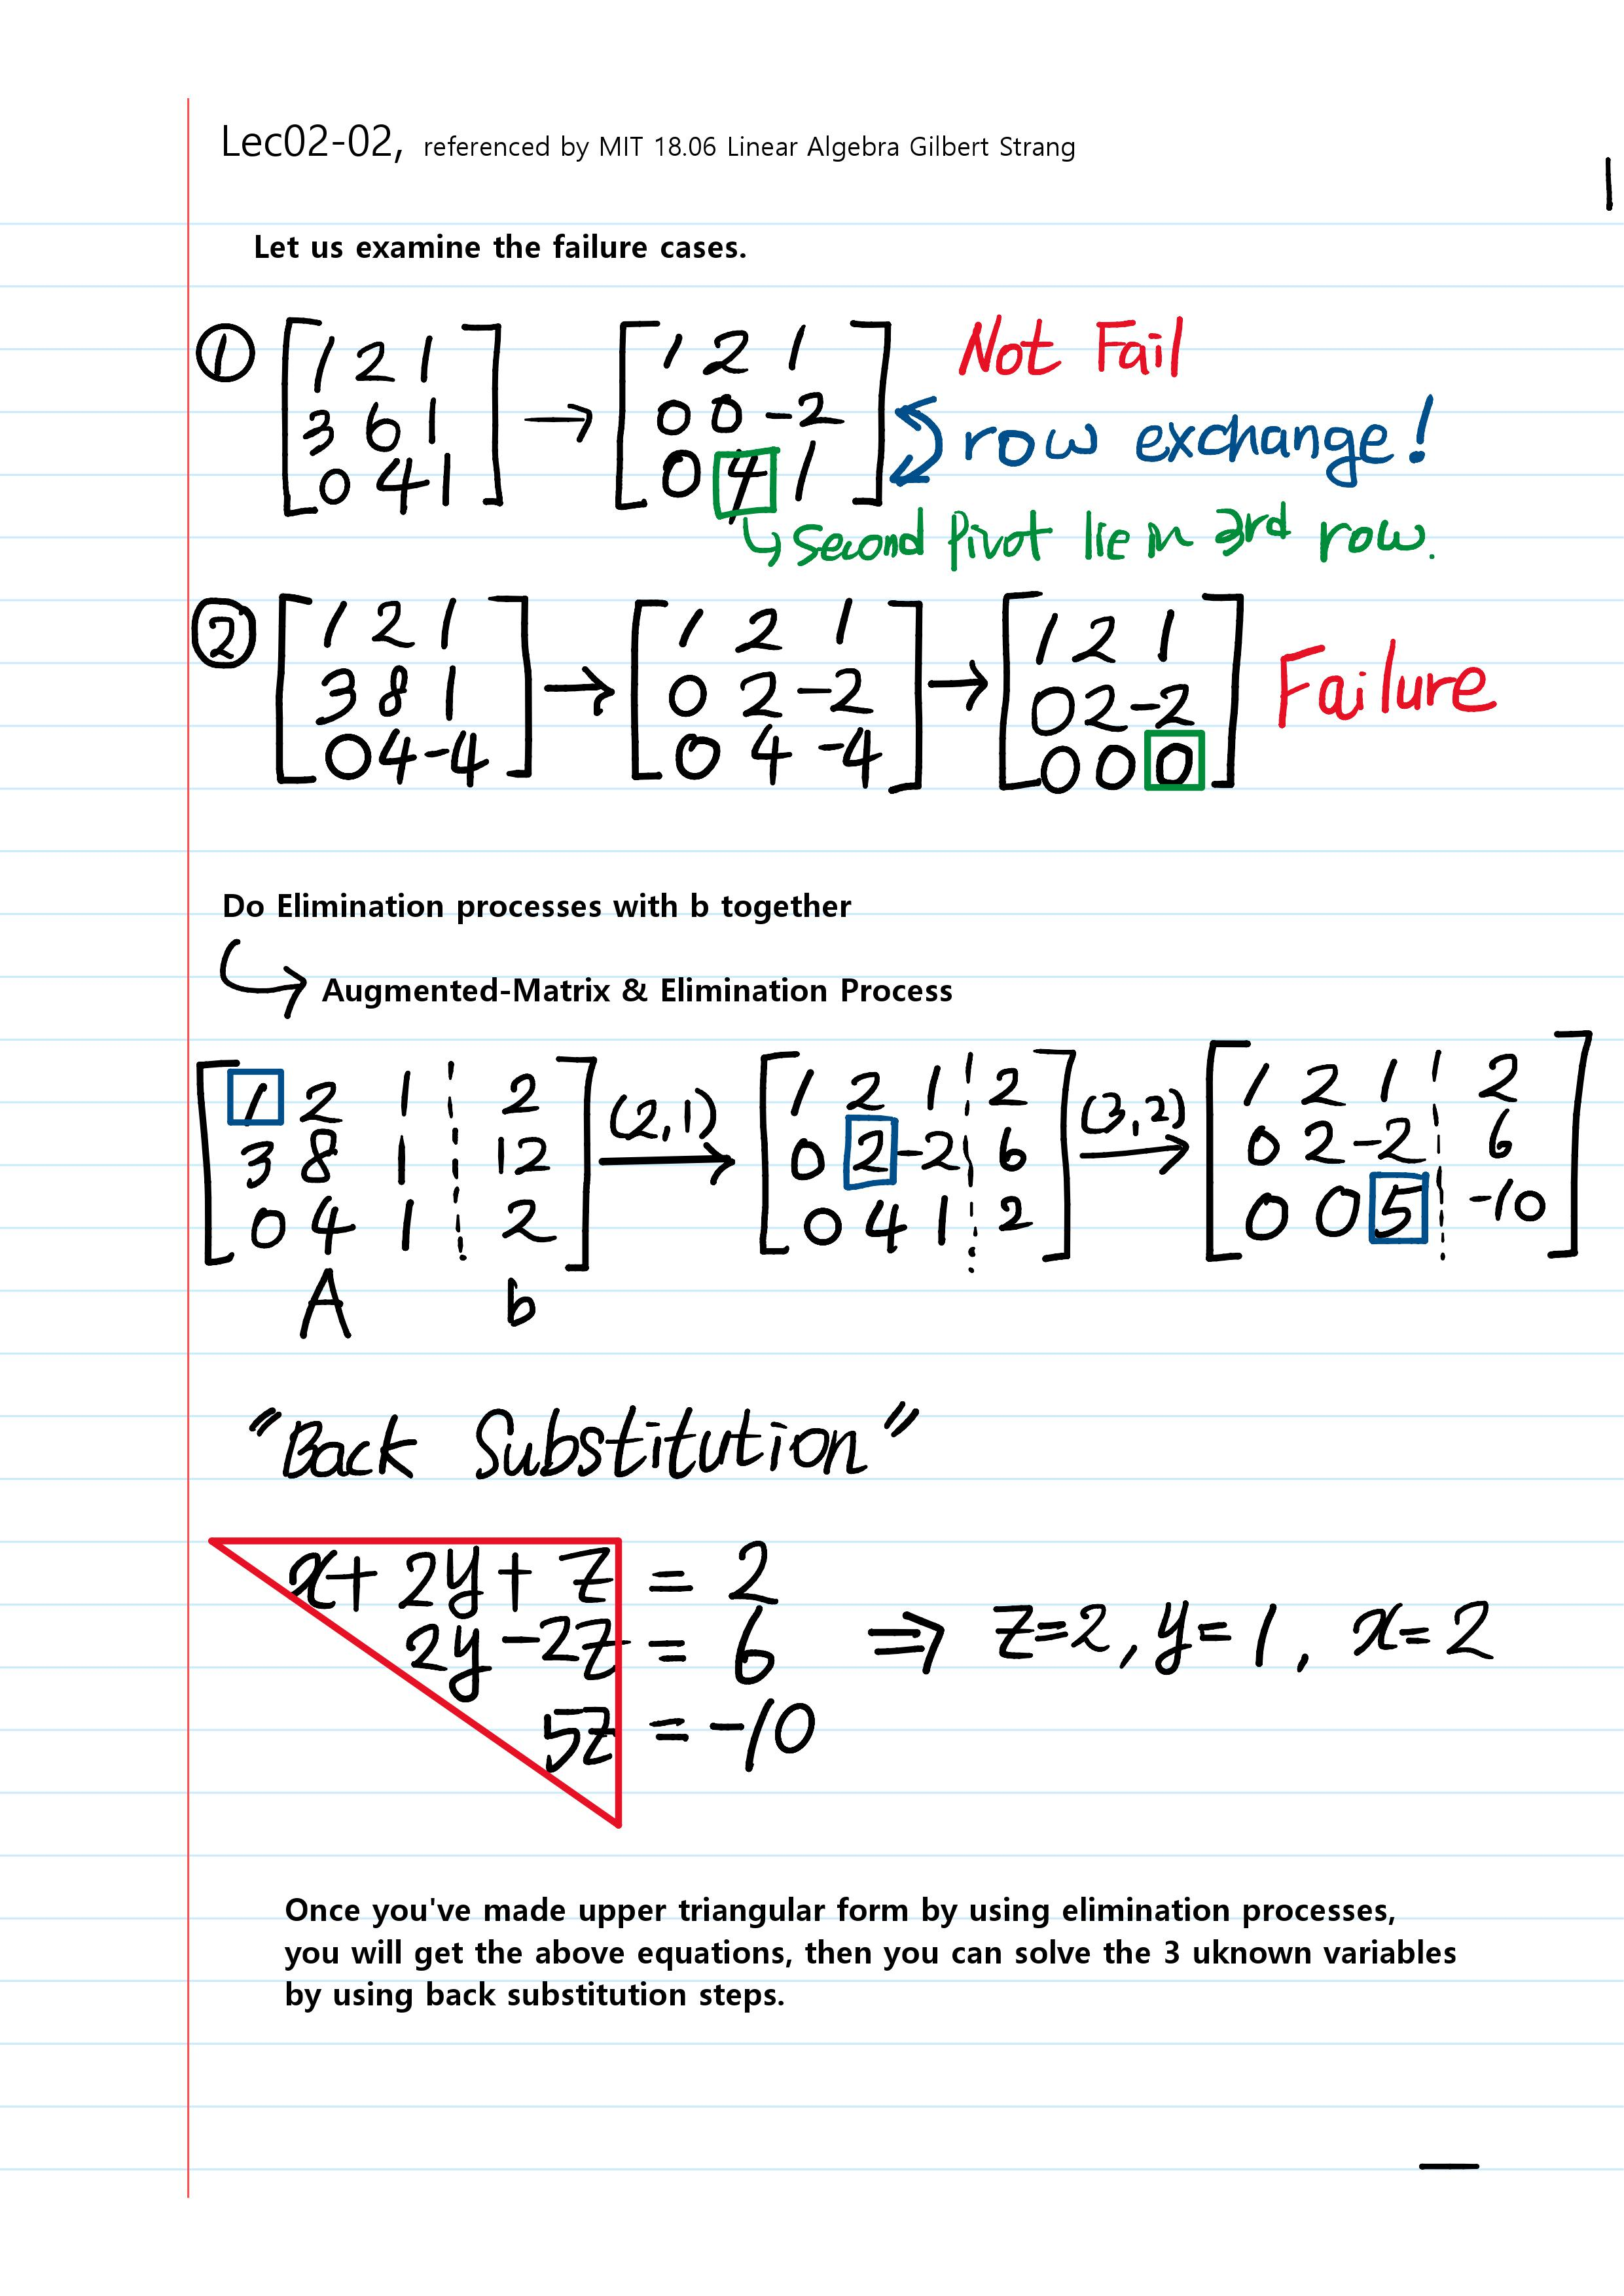 Lec02-02, referenced by MIT 18.06 Linear Algebra Gilbert Strang
Let us examine the failure cases.
① [1 2 1 → [1 2 1 Not Fail
3 6 1 0 0 -2 row exchange!
0 4 1] 0 4 1]
↳ Second Pivot lie in 3rd row.
② [1 2 1 → [1 2 1 → [1 2 1 Failure
3 8 1 0 2 -2 0 2 -2
0 4 -4] 0 4 -4] 0 0 0]
Do Elimination processes with b together
Augmented-Matrix & Elimination Process
[1 2 1 ¦ 2 (2,1) [1 2 1 ¦ 2 (3,2) [1 2 1 ¦ 2
3 8 1 ¦ 12 → 0 2 -2 ¦ 6 → 0 2 -2 ¦ 6
0 4 1 ¦ 2] 0 4 1 ¦ 2] 0 0 5 ¦ -10]
A b
"Back Substitution"
x + 2y + z = 2
2y - 2z = 6 ⇒ z=2, y=1, x=2
5z = -10
Once you've made upper triangular form by using elimination processes,
you will get the above equations, then you can solve the 3 uknown variables
by using back substitution steps.